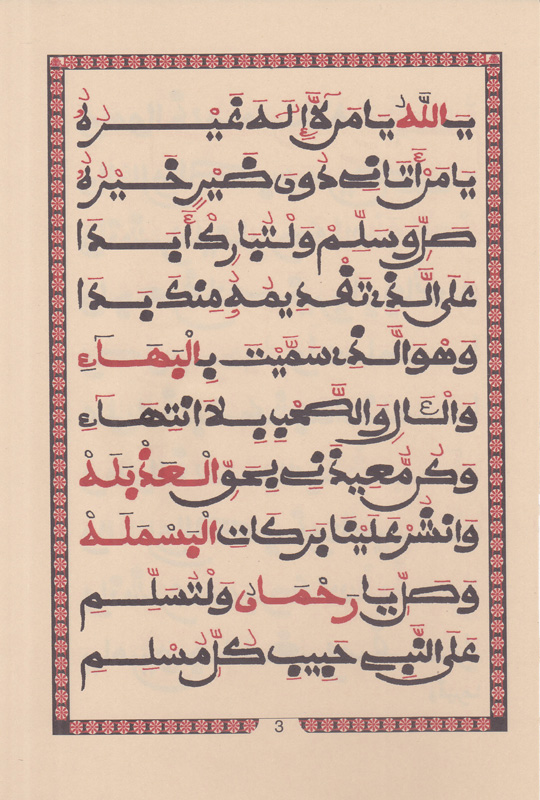 يَا اَللَّهُ يَا مَن لَّا إِلَهَ غَيْرُهُ
يَا مَنْ أَتَانِي دُونَ ضَيْرٍ خَيْرُهُ
صَلِّ وَسَلِّمْ وَلْتُبَارِكْ أَبَدَا
عَلَى الَّذِي تَقْدِيمُهُ مِنْكَ بَدَا
وَهْوَ الَّذِي سَمَّيْتَ بِالْبَهَاءِ
وَالْآلِ وَالصَّحْبِ بِلَا انْتِهَاءِ
وَكُن مُّعِيذَنِي بِحَقِّ الْعَذْبَلَهْ
وَانْشُرْ عَلَيْنَا بَرَكَاتِ الْبَسْمَلَهْ
وَصَلِّ يَا رَحْمَانُ وَلْتُسَلِّمِ
عَلَى النَّبِي حَبِيبِ كُلِّ مُسْلِمِ
3